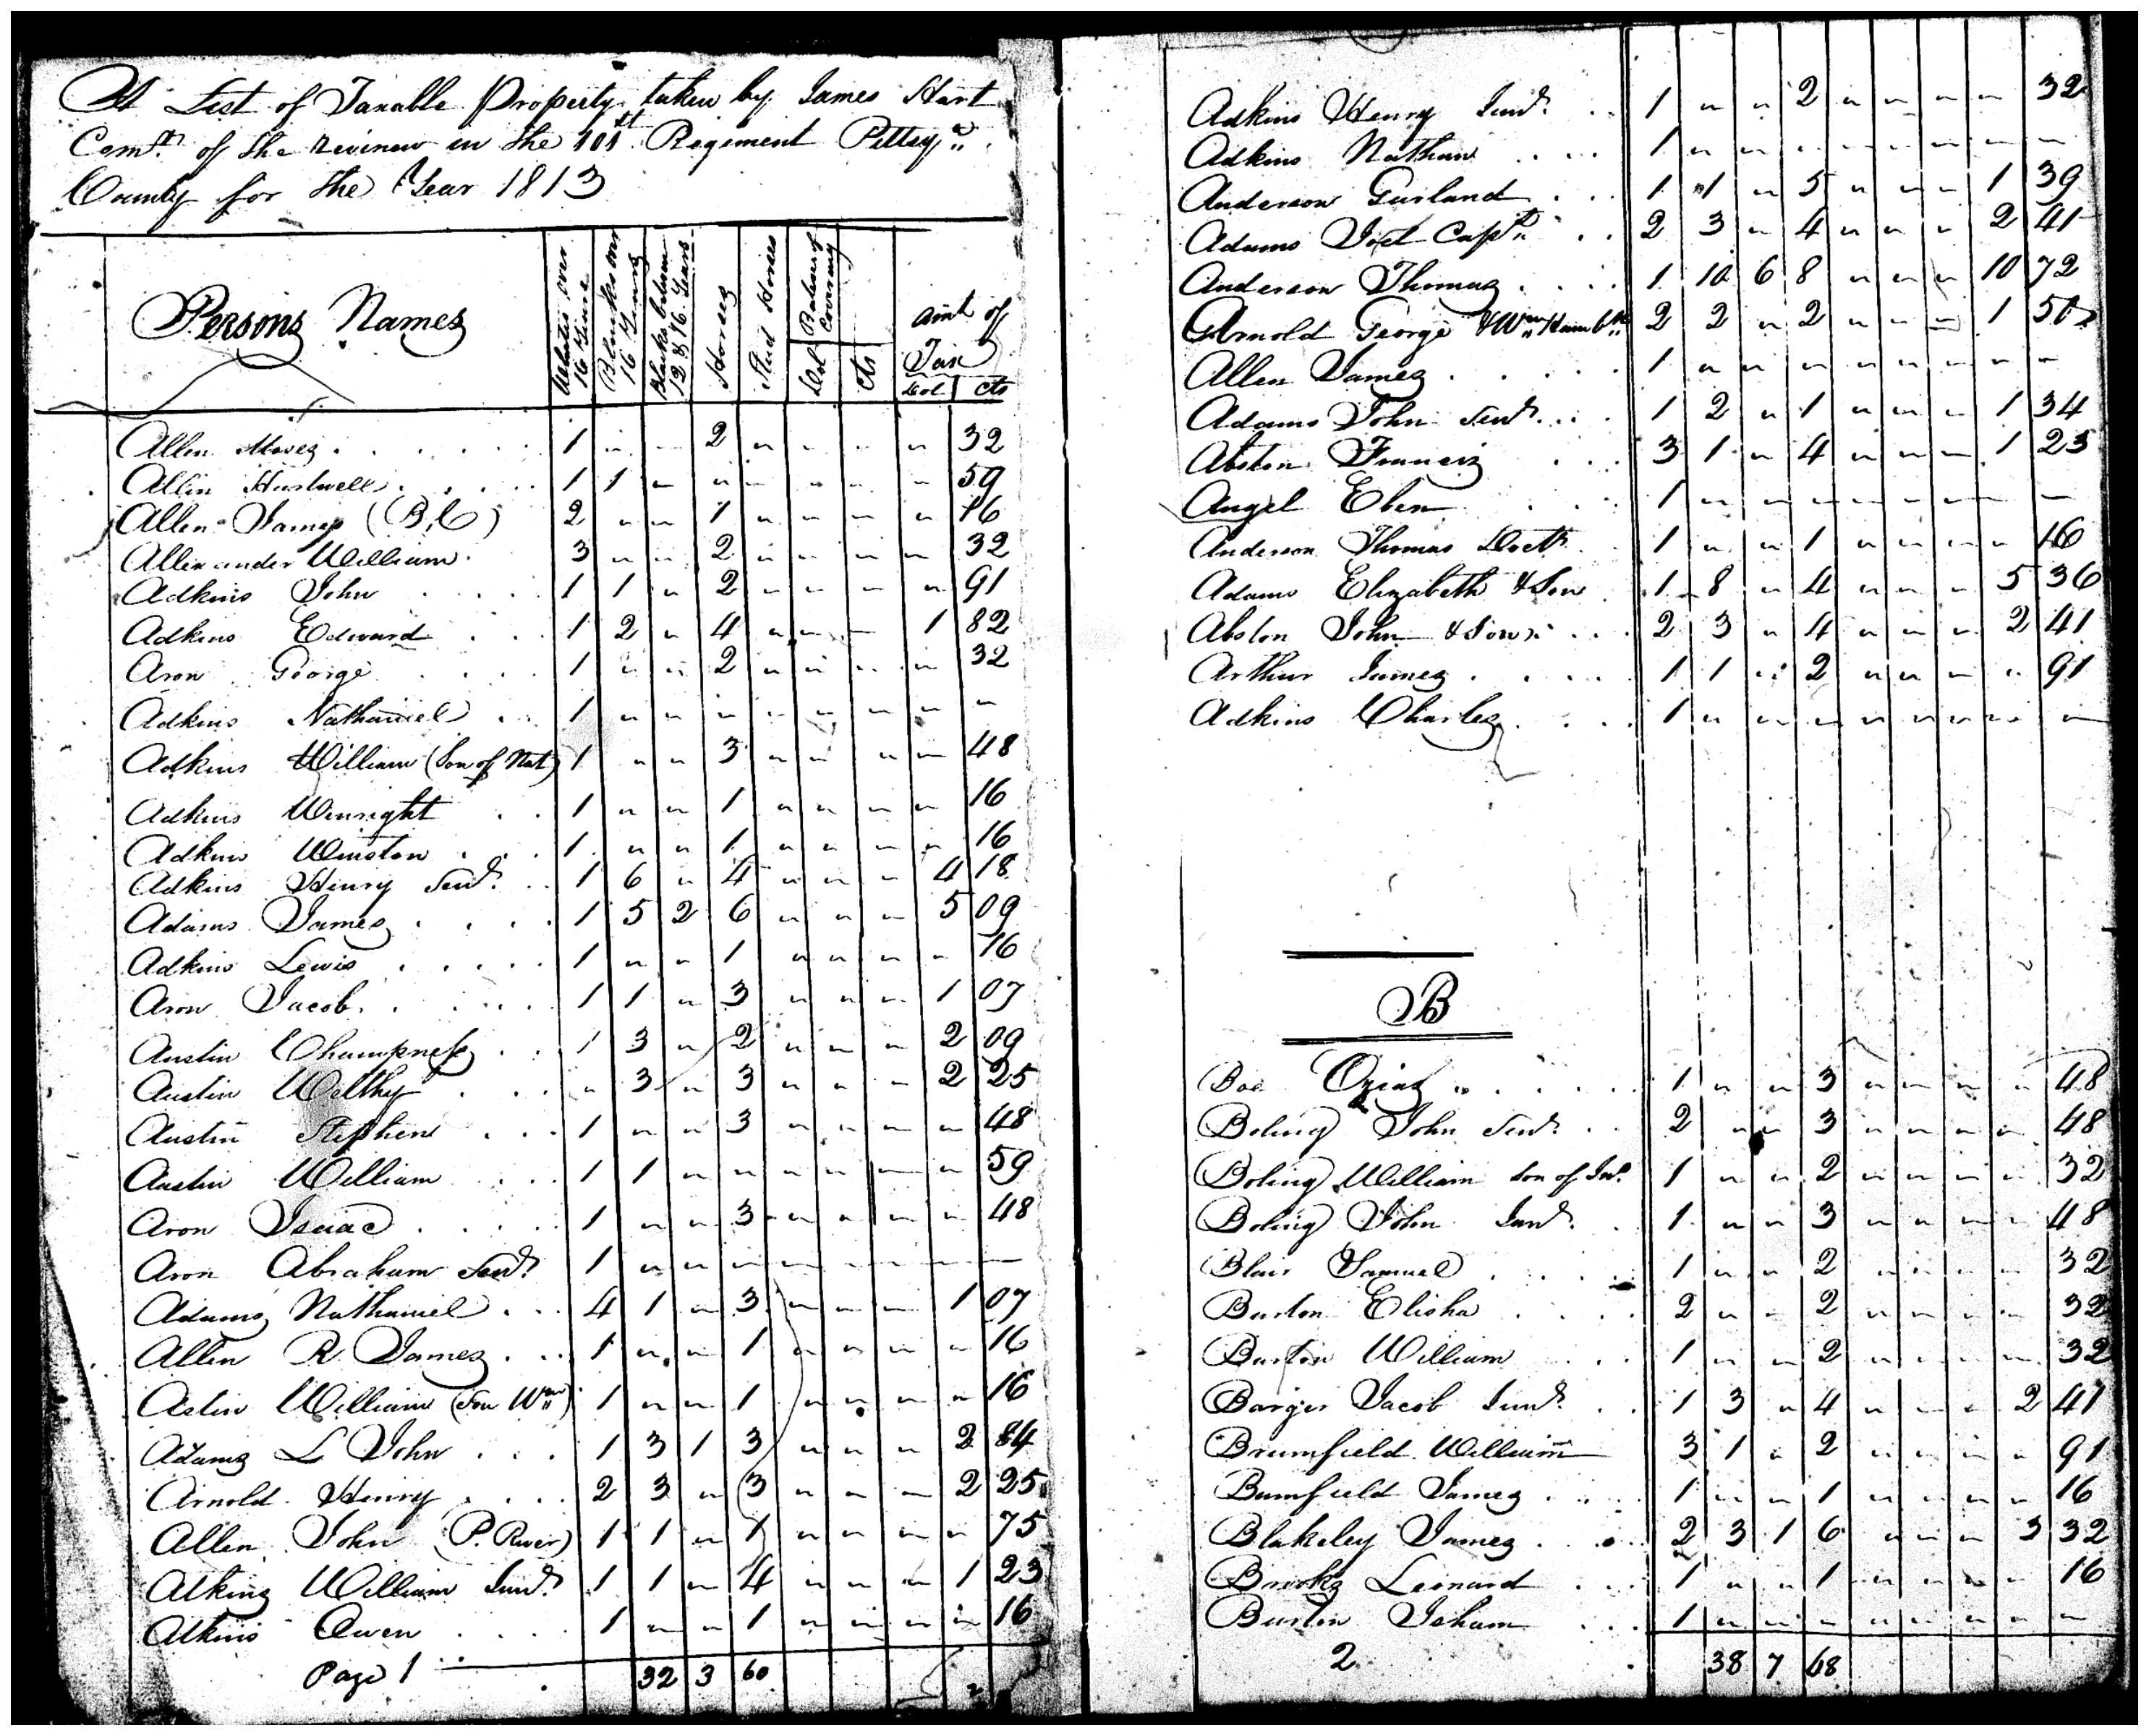 A List of Taxable Property taken by James Hart
Comr. of the revinew in the 101st Regiment Pittsya.
County for the Year 1813
Persons Names
Whites over 16 Years
Blacks over 16 Years
Blacks between 12 & 16 Years
Horses
Stud Horses
Dol
Cts
amt of Tax
Dol cts
Allen Moses . . . . . . 1 " " 2 " " " " 32
Allin Hartwell . . . . 1 1 " " " " " " 59
Allen James (B,C) 2 " " 1 " " " " 16
Allexander William . 3 " " 2 " " " " 32
Adkins John . . . . 1 1 " 2 " " " " 91
Adkins Edward . . . 1 2 " 4 " " " 1 82
Aron George . . . . 1 " " 2 " " " " 32
Adkins Nathaniel . . 1 " " " " " " " "
Adkins William (Son of Nat) 1 " " 3 " " " " 48
Adkins Winright . . 1 " " 1 " " " " 16
Adkins Winston . . . 1 " " 1 " " " " 16
Adkins Henry Senr. . . 1 6 " 4 " " " 4 18
Adams James . . . . 1 5 2 6 " " " 5 09
Adkins Lewis . . . . . 1 " " 1 " " " " 16
Aron Jacob . . . . . 1 1 " 3 " " " 1 07
Austin Champness . . . 1 3 " 2 " " " 2 09
Austin Welthy . . . " 3 " 3 " " " 2 25
Austin Stephen . . . 1 " " 3 " " " " 48
Austin William . . . 1 1 " " " " " " 59
Aron Isaac . . . . . 1 " " 3 " " " " 48
Aron Abraham Senr. 1 " " " " " " " "
Adams Nathaniel . . . 4 1 " 3 " " " 1 07
Allen R. James . . . 1 " " 1 " " " " 16
Astin William (Son Wm) 1 " " 1 " " " " 16
Adams L John . . . 1 3 1 3 " " " 2 84
Arnold Henry . . . . 2 3 " 3 " " " 2 25
Allen John (P. River) 1 1 " 1 " " " " 75
Atkins William Junr. 1 1 " 4 " " " 1 23
Atkins Owen . . . . 1 " " 1 " " " " 16
Page 1 32 3 60
Adkins Henry Junr. . . 1 " " 2 " " " " 32
Adkins Nathan . . . . 1 " " " " " " " "
Anderson Garland . . . 1 1 " 5 " " " 1 39
Adams Joel Captn. . . 2 3 " 4 " " " 2 41
Anderson Thomas . . . . 1 10 6 8 " " " 10 72
Arnold George & Wm 2 2 " 2 " " " 1 50
Allen James . . . . . 1 " " " " " " " "
Adams John Senr. . . . 1 2 " 1 " " " 1 34
Abston Francis . . . 3 1 " 4 " " " 1 23
Angel Eben . . . 1 " " " " " " " "
Anderson Thomas Doctr. . 1 " " 1 " " " " 16
Adams Elizabeth & Son . 1 8 " 4 " " " 5 36
Abston John & Sons . . . 2 3 " 4 " " " 2 41
Arthur James . . . . 1 1 " 2 " " " " 91
Adkins Charles . . . . 1 " " " " " " " "
B
Boe Ozias . . . . . 1 " " 3 " " " " 48
Boling John Senr. . . 2 " " 3 " " " " 48
Boling William son of Jno. 1 " " 2 " " " " 32
Boling John Junr. . 1 " " 3 " " " " 48
Blair Samuel . . . . 1 " " 2 " " " " 32
Burton Elisha . . . . 2 " " 2 " " " " 32
Burton William . . . 1 " " 2 " " " " 32
Barger Jacob Junr. . . 1 3 " 4 " " " 2 41
Brumfield William 3 1 " 2 " " " " 91
Bumfield James . . . . 1 " " 1 " " " " 16
Blakeley James . . . 2 3 1 6 " " " 3 32
Brooks Leonard . . . 1 " " 1 " " " " 16
Burton Isham . . . 1 " " " " " " " "
2 38 7 68